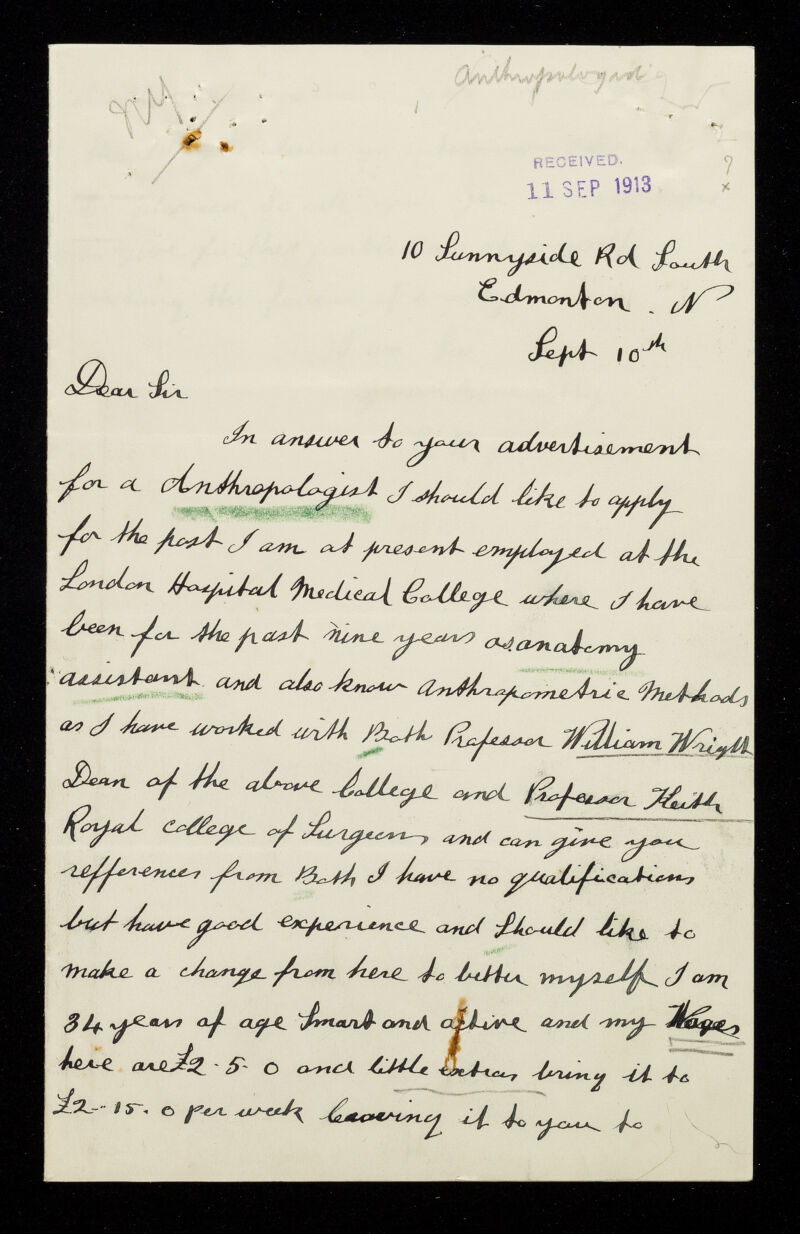 Anthropologist
RECEIVED.
11 SEP 1913
10 Sunnyside Rd South
Edmonton . N
Sept 10th
Dear Sir
In answer to your advertisement
for a Anthropologist I should like to apply
for the post I am at present employed at the
London Hospital Medical College where I have
been for the past nine years as anatomy
assistant and also know Anthropometric Methods
as I have worked with Both Professor William Wright
Dean of the above College and Professor Keith
Royal college of Surgeons and can give you
refferences from Both I have no qualifications
but have good experience and should like to
make a change from here to better myself I am
34 years of age Smart and active and my Wages
here are £2 - 5 - 0 and little extras bring it to
£2 - 15 - 0 per week leaving it to you to